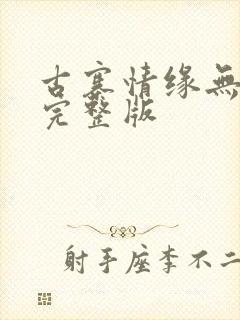 古寨情缘無
完整版
射手座李不二